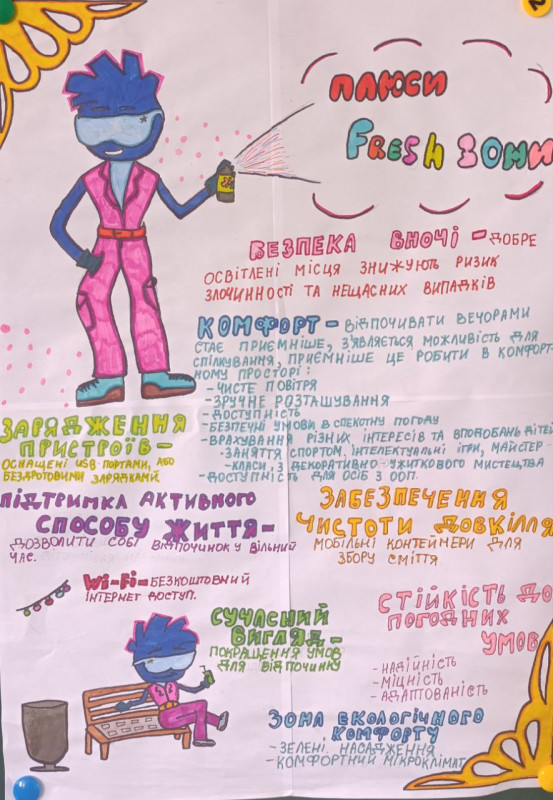 ПЛЮСИ
FRESh ЗОНИ
БЕЗПЕКА ВНОЧІ - ДОБРЕ
ОСВІТЛЕНІ МІСЦЯ ЗНИЖУЮТЬ РИЗИК
ЗЛОЧИННОСТІ ТА НЕЩАСНИХ ВИПАДКІВ
КОМФОРТ - ВІДПОЧИВАТИ ВЕЧОРАМИ
СТАЄ ПРИЄМНІШЕ, З'ЯВЛЯЄТЬСЯ МОЖЛИВІСТЬ ДЛЯ
СПІЛКУВАННЯ, ПРИЄМНІШЕ ЦЕ РОБИТИ В КОМФОРТ-
НОМУ ПРОСТОРІ:
- ЧИСТЕ ПОВІТРЯ
- ЗРУЧНЕ РОЗТАШУВАННЯ
- ДОСТУПНІСТЬ
- БЕЗПЕЧНІ УМОВИ В СПЕКОТНУ ПОГОДУ
- ВРАХУВАННЯ РІЗНИХ ІНТЕРЕСІВ ТА ВПОДОБАНЬ ДІТЕЙ
- ЗАНЯТТЯ СПОРТОМ, ІНТЕЛЕКТУАЛЬНІ ІГРИ, МАЙСТЕР-
- КЛАСИ, З ДЕКОРАТИВНО-УЖИТКОВОГО МИСТЕЦТВА
- ДОСТУПНІСТЬ ДЛЯ ОСІБ З ООП.
ЗАРЯДЖЕННЯ
ПРИСТРОЇВ-
ОСНАЩЕНІ USB-ПОРТАМИ, АБО
БЕЗДРОТОВИМИ ЗАРЯДКАМИ.
ПІДТРИМКА АКТИВНОГО
СПОСОБУ ЖИТТЯ-
ДОЗВОЛИТИ СОБІ ВІДПОЧИНОК У ВІЛЬНИЙ
ЧАС.
ЗАБЕЗПЕЧЕННЯ
ЧИСТОТИ ДОВКІЛЛЯ
МОБІЛЬНІ КОНТЕЙНЕРИ ДЛЯ
ЗБОРУ СМІТТЯ
Wi-Fi - БЕЗКОШТОВНИЙ
ІНТЕРНЕТ ДОСТУП.
СУЧАСНИЙ
ВИГЛЯД -
ПОКРАЩЕННЯ УМОВ
ДЛЯ ВІДПОЧИНКУ
СТІЙКІСТЬ ДО
ПОГОДНИХ
УМОВ
- НАДІЙНІСТЬ
- МІЦНІСТЬ
- АДАПТОВАНІСТЬ
ЗОНА ЕКОЛОГІЧНОГО
КОМФОРТУ
- ЗЕЛЕНІ НАСАДЖЕННЯ
- КОМФОРТНИЙ МІКРОКЛІМАТ